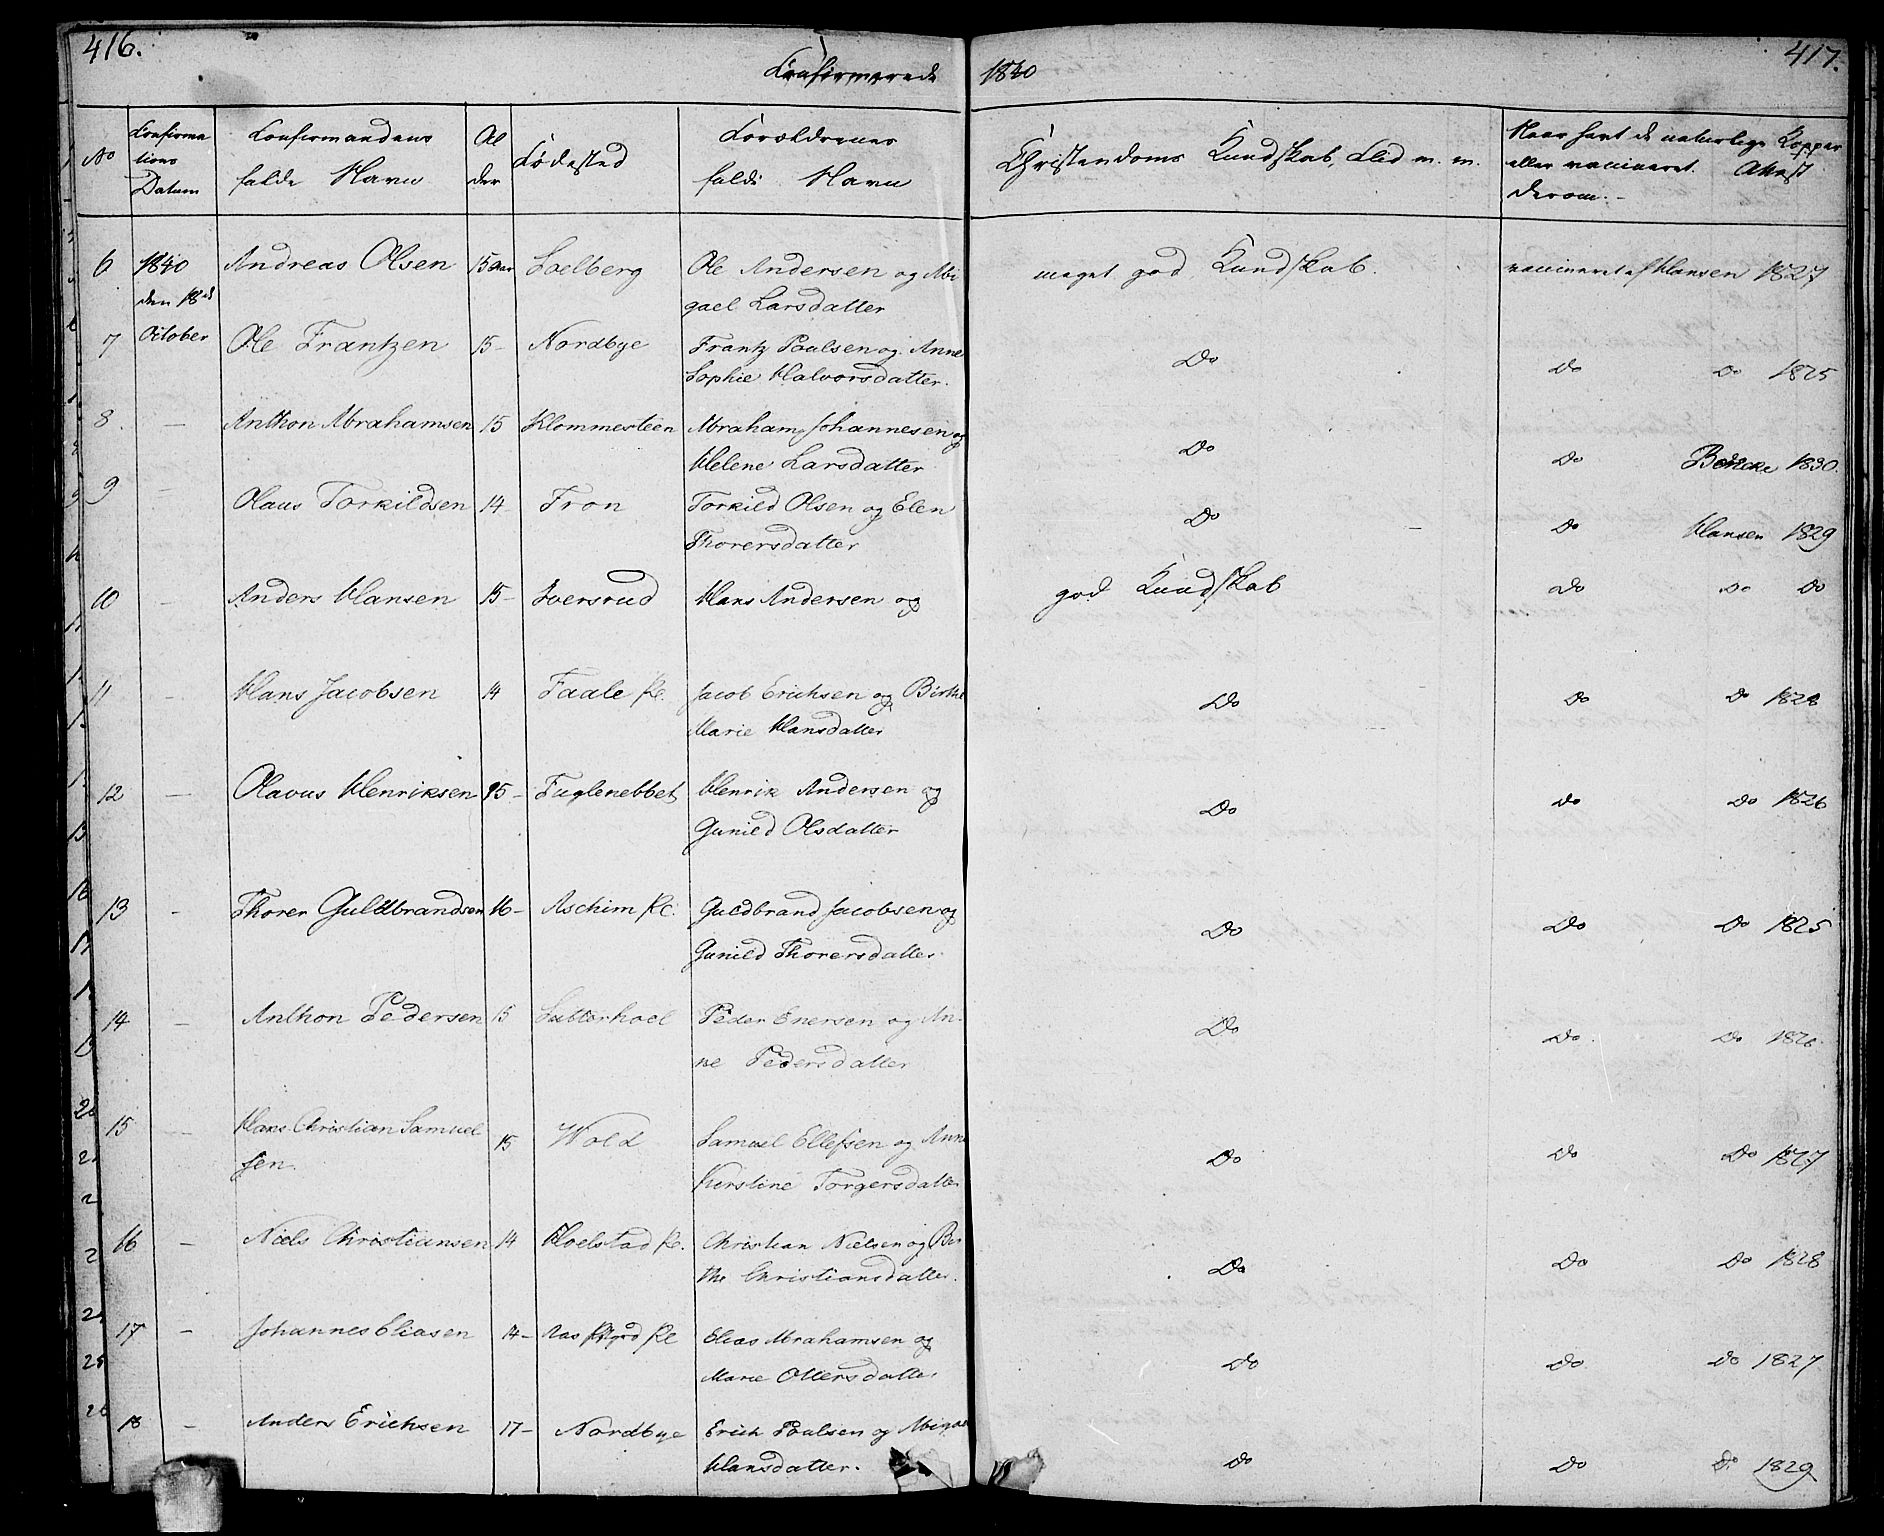 416.
Confirmerede 1840
417.
No
Confirma
tions
Datum
Confirmandens
fulde Navn
Al
der
Fødested
Forældrenes
fulde Navn
Christendoms Kundskab, Flid m. m.
Naar havt de naturlige Kopper
eller vaccineret. Attest
derom.
6 1840 Andreas Olsen 15 Aar Soelberg Ole Andersen og Abi meget god Kundskab. vaccineret af Hansen 1827
den 18de gael Larsdatter
7 October Ole Frantzen 15- Nordbye Frantz Poulsen og Anne Do Do Do 1825
Sophie Halvorsdatter.
8. — Anthon Abrahamsen 15 Klommesteen Abraham Johannesen og Do Do Bencke 1830.
Helene Larsdatter
9 — Olaus Torkildsen 14 Fron Torkild Olsen og Elen Do Do Hansen 1829
Thorersdatter
10 — Anders Hansen 15- Sversrud Hans Andersen og god Kundskab Do Do Do
11 — Hans Jacobsen 14 Faale Jacob Erichsen og Birthe Do Do Do 1828
Marie Hansdatter
12 — Olavus Henriksen 15- Fuglenebbet Henrik Andersen og Do Do Do 1826
Gunild Olsdatter
13 - Thorer Guldbrandsen 16- Aschim Guldbrand Jacobsen og Do Do Do 1825
Gunild Thorersdatter
14 - Anthon Pedersen 15 Sutterhoel Peder Enersen og An- Do Do Do 1826.
ne Pedersdatter
15 — Hans Christian Samuel 15 Wold Samuel Ellefsen og Anne Do Do Do 1827
sen. Kirstine Torgersdatter
16 - Niels Christiansen 14 Hoelstad Christian Nielsen og Ber Do Do Do 1828
the Christiansdatter.
17 - Johannes Eliasen 14- Aas Elias Abrahamsen og Do Do Do 1827
Marie Ottersdatter
18 - Anders Erichsen 17- Nordbye Erich Poulsen og Abigael Do Do Do 1829
Hansdatter.